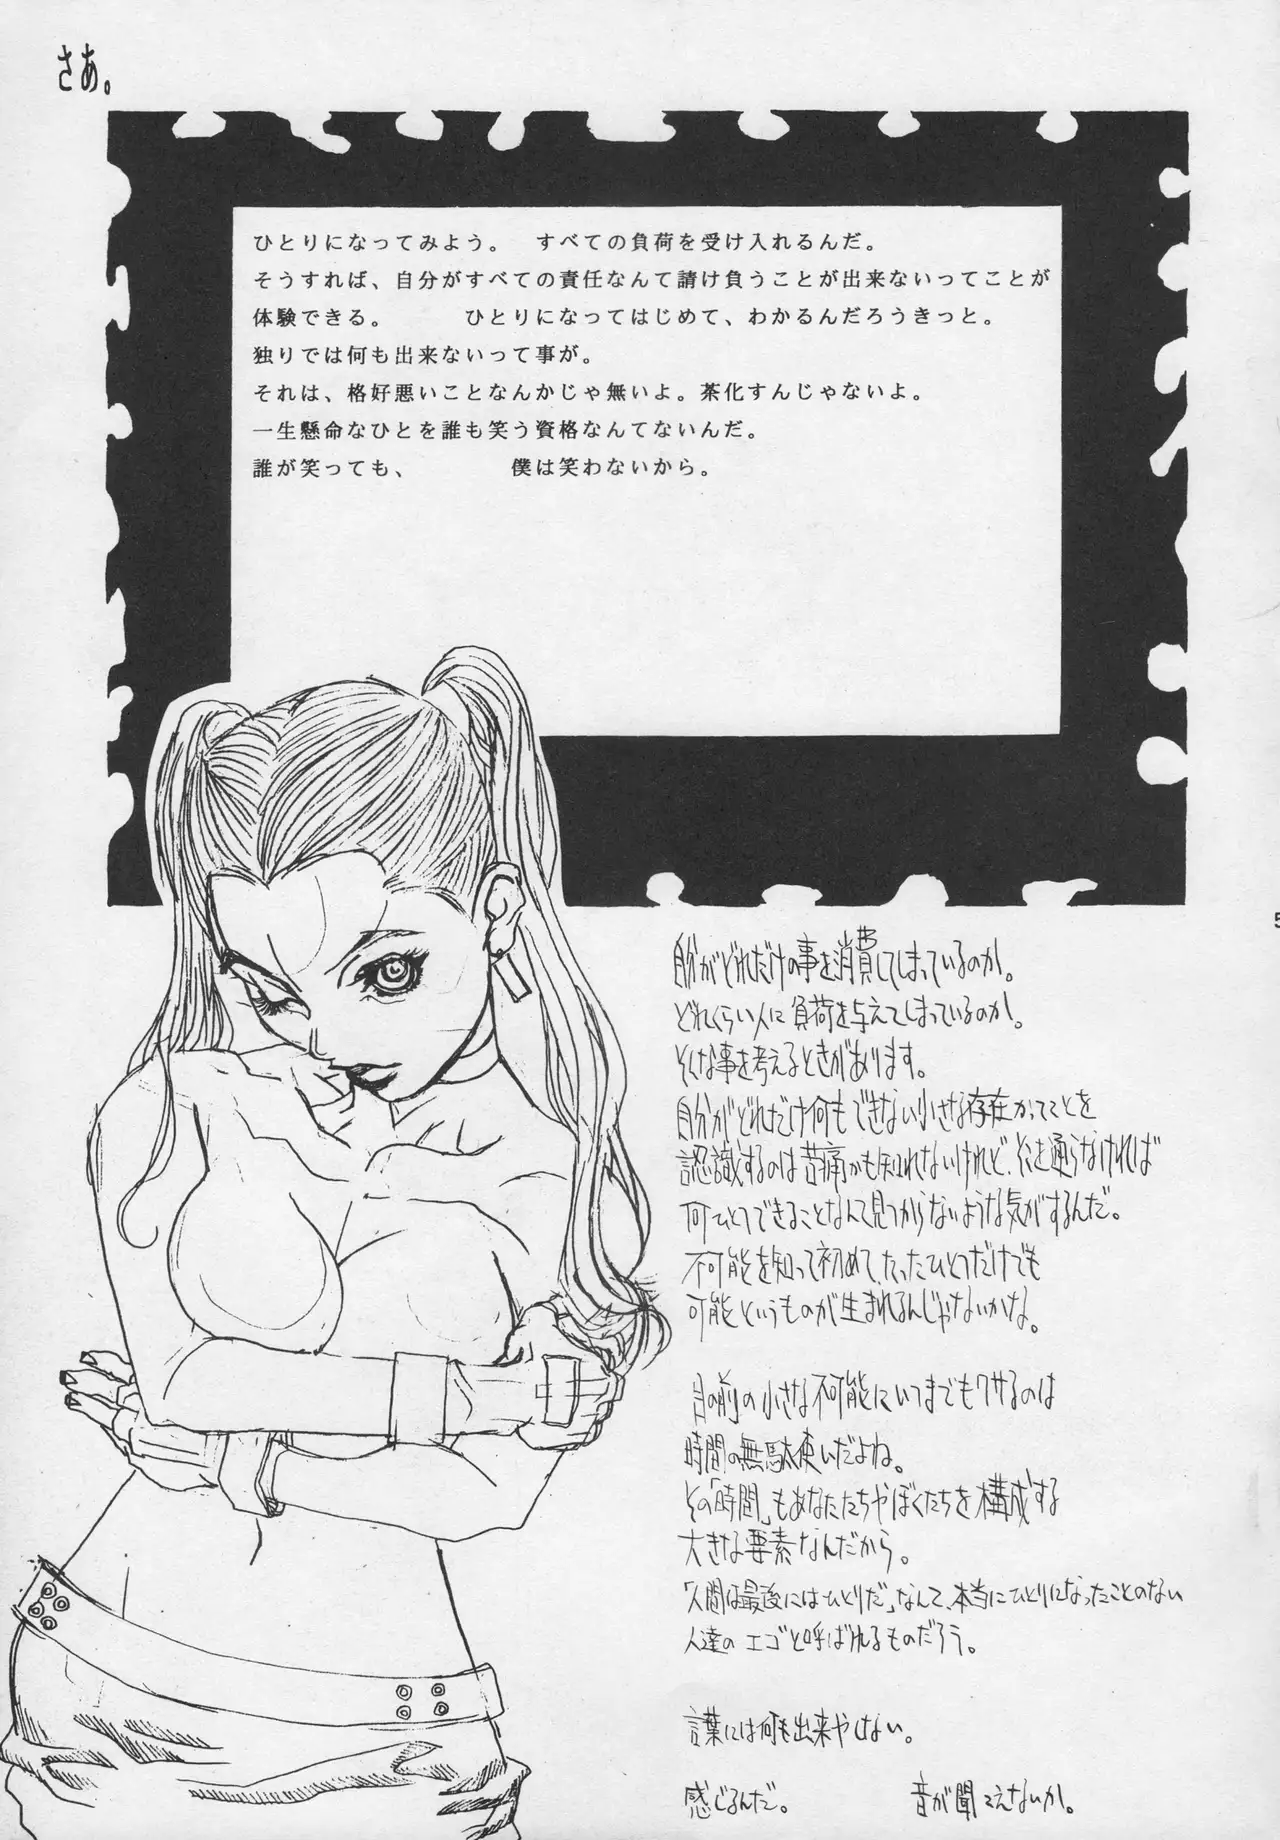 さあ。
ひとりになってみよう。　すべての負荷を受け入れるんだ。
そうすれば、自分がすべての責任なんて請け負うことが出来ないってことが
体験できる。　　　ひとりになってはじめて、わかるんだろうきっと。
独りでは何も出来ないって事が。
それは、格好悪いことなんかじゃ無いよ。茶化すんじゃないよ。
一生懸命なひとを誰も笑う資格なんてないんだ。
誰が笑っても、　　　　僕は笑わないから。
5
自分がどれだけの事を消費してしまっているのか。
どれくらい人に負荷を与えてしまっているのか。
そんな事を考えるときがあります。
自分がどれだけ何もできない小さな存在かってことを
認識するのは苦痛かも知れないけれど、そこを通らなければ
何ひとつできることなんて見つからないような気がするんだ。
不可能を知って初めて、たったひとつだけでも
可能というものが生まれるんじゃないかな。
目の前の小さな不可能にいつまでもクサるのは
時間の無駄使いだよね。
その「時間」もあなたたちやぼくたちを構成する
大きな要素なんだから。
「人間は最後にはひとりだ」なんて、本当にひとりになったことのない
人達のエゴと呼ばれるものだろう。
言葉には何も出来やしない。
感じるんだ。　　　音が聞こえないか。